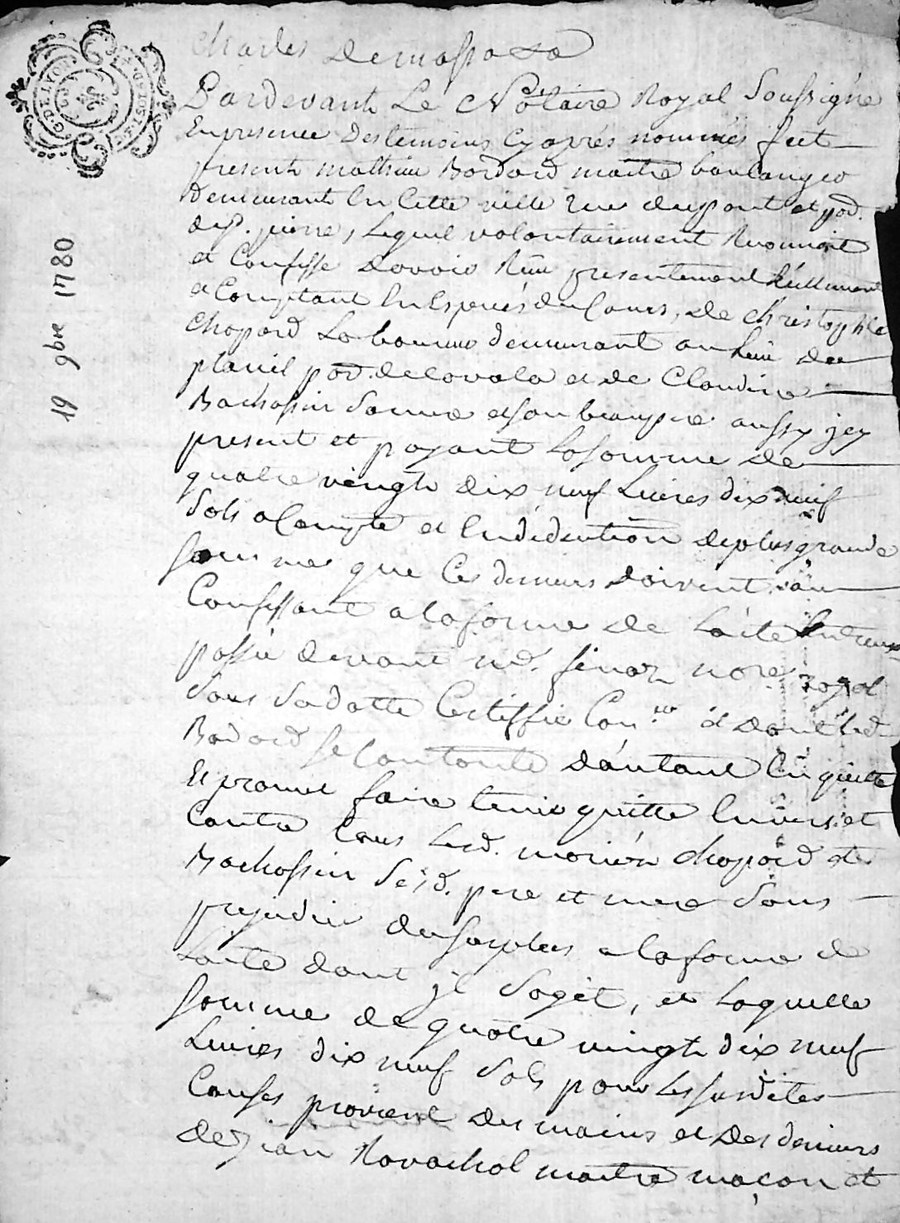 G. DE LYON
19 9bre 1780
Charles
Pardevant Le Nôtaire Royal Soussigné
En presence Des temoins Cy aprés nommés fut
present mathieu Bordard maitre boulanger
Demeurant En Cette ville Rue dupont et pod.
de St. pierre, Lequel volontairement Reconnoit
et Confesse Davoir Reçu presentement Réellement
a Comptant En Espéces du Cours, de christophle
Chopard Laboureur demeurant au Lieu de
planil pod. de Lavala et de Claudine
Bachassin Sa mere et Son beaupere aussy jcy
present et payant La Somme de
quatre vingt dix neuf Livres dix neuf
Sols a Compte et En dédution de plus grande
Somme que Ces derniers doivent au
Confessant a la forme de L'acte Entreux
passé devant me. finaz nore. royal
Sous Sa datte Certiffié Con.lé et Dont led.
Bodard Se Contente D'autant En quitte
Et promet faire tenir quitte Envers et
Contre tous Lesd. mariés chopard et
Bachassin Sesd. pere et mere Sans
prejudice du Surplus a la forme de
Lacte dont jl Sagit, et Laquelle
Somme de quatre vingt dix neuf
Livres dix neuf Sols pour Les Susdites
Causes provient des mains et Des deniers
de Jean Ravachol maitre maçon et